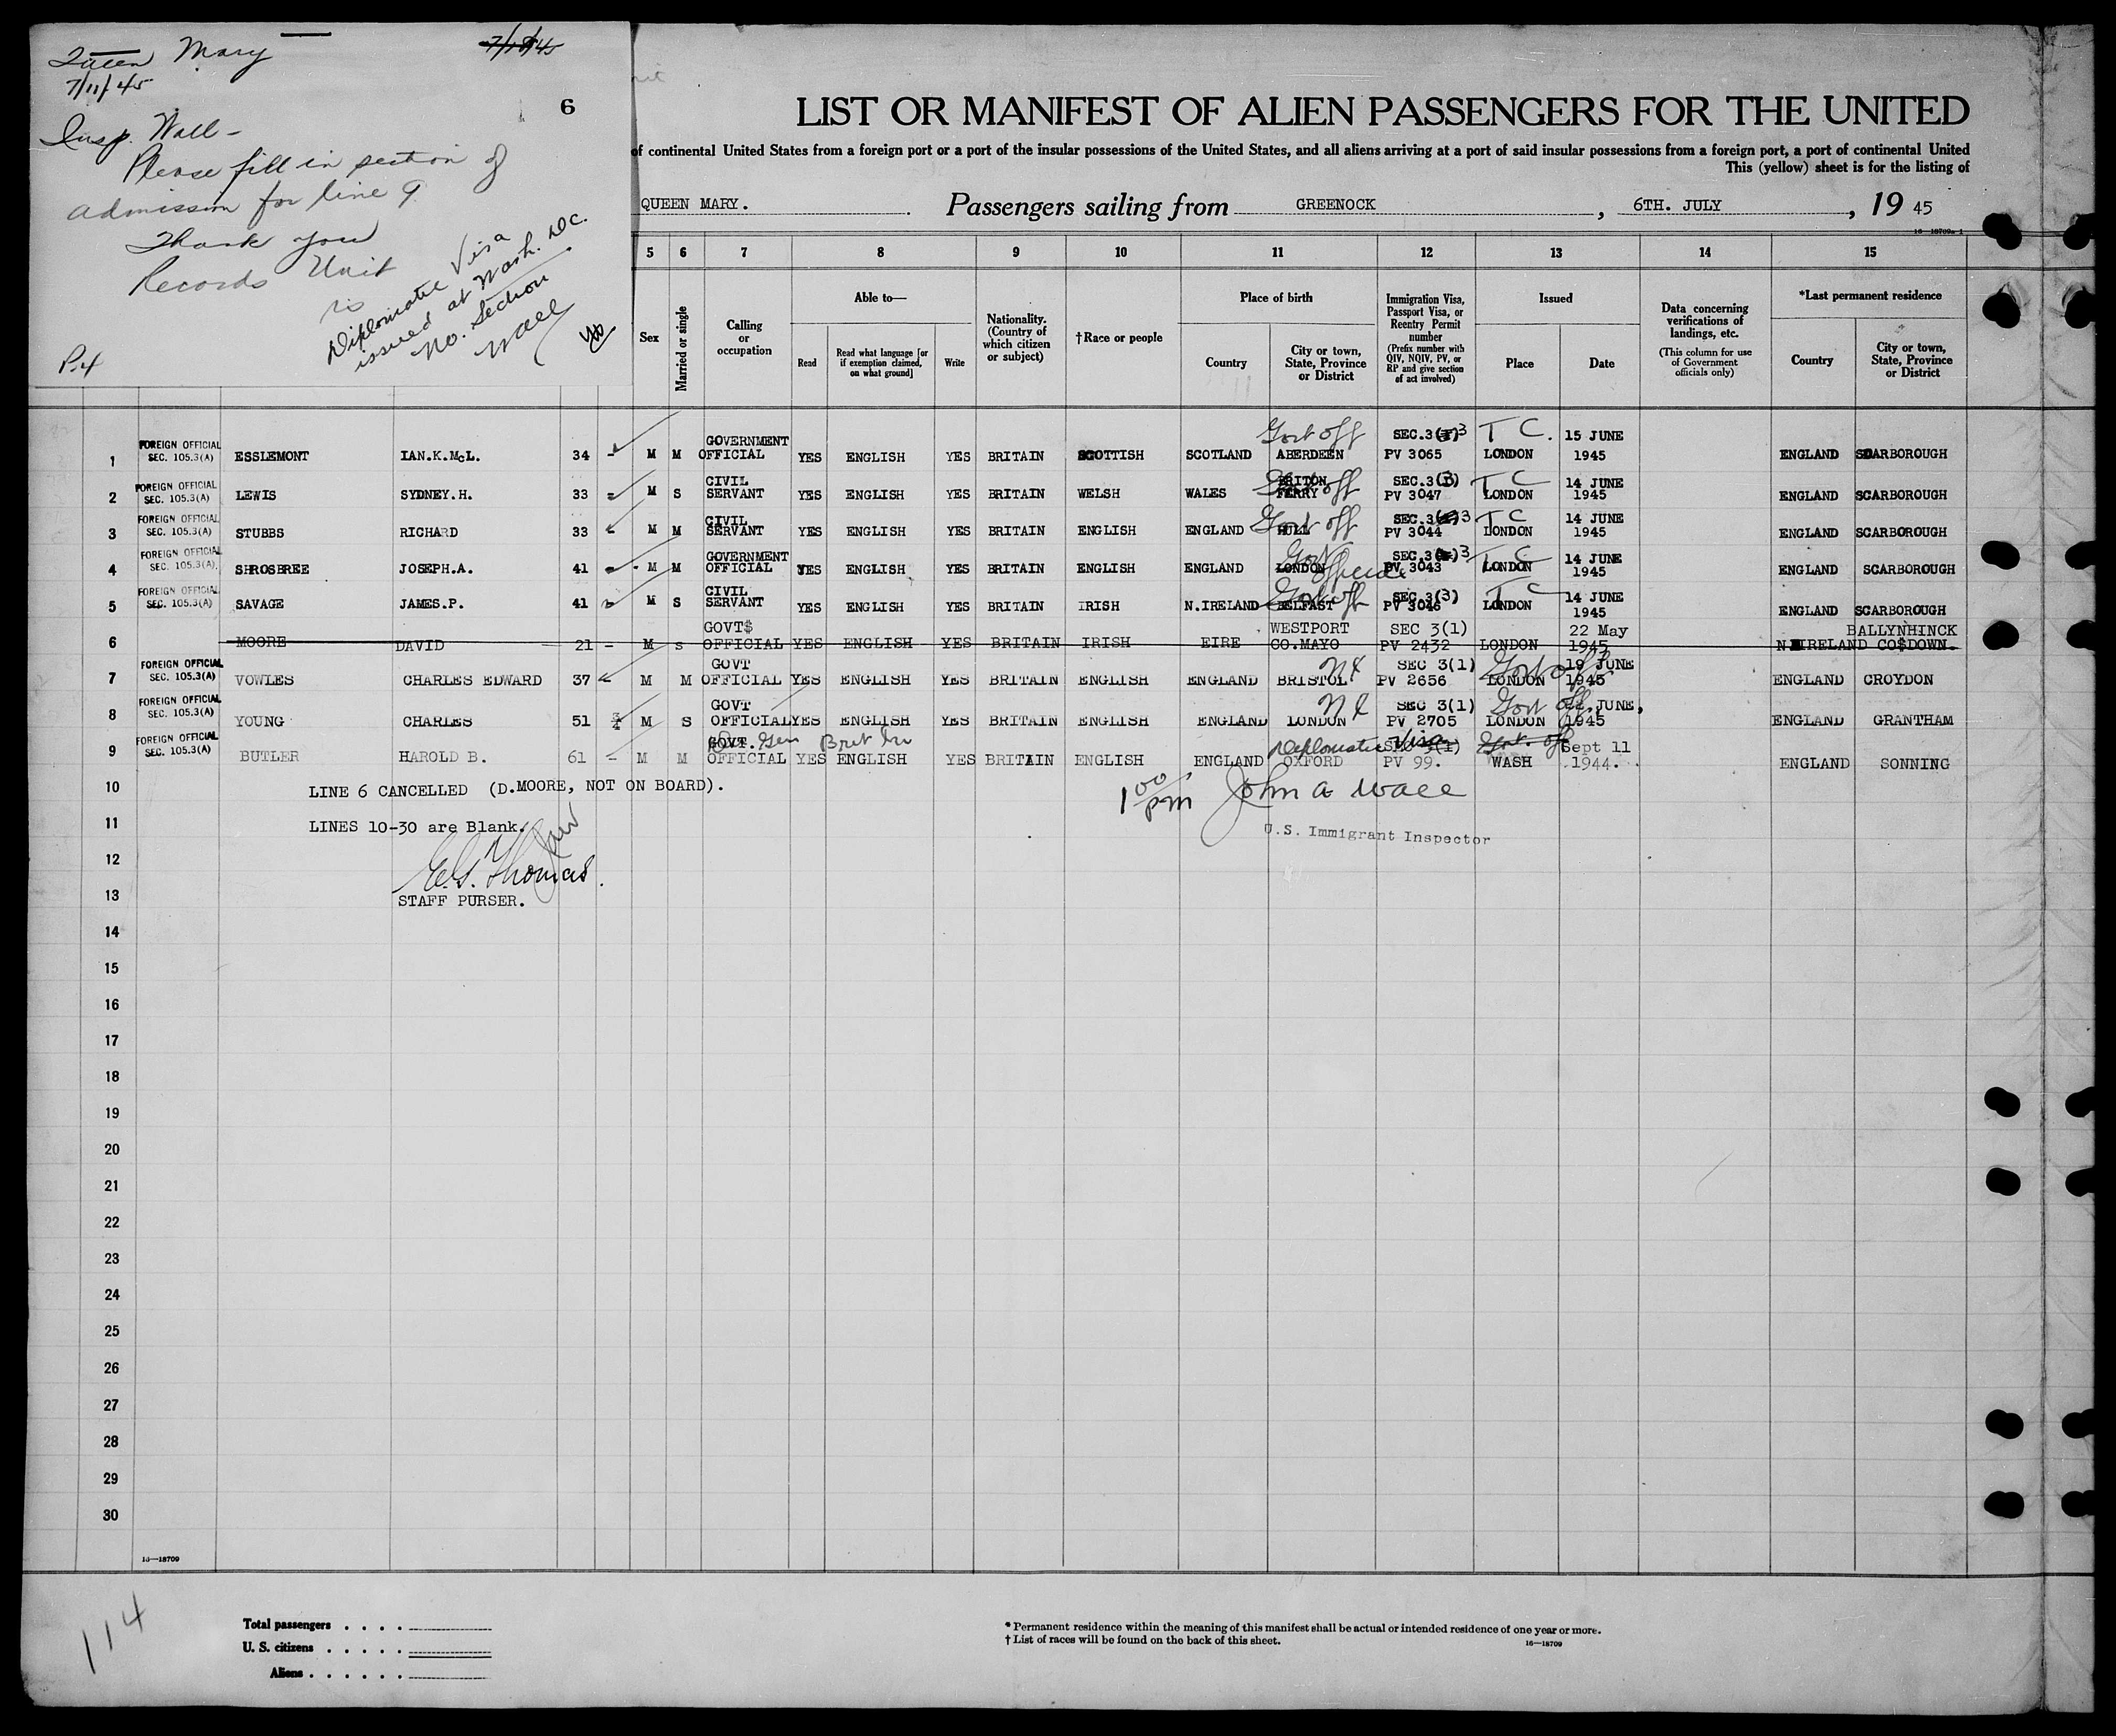 Queen Mary
7/11/45
6
Insp. Wall -
Please fill in section of
admission for line 9
Thank you
Records Unit
Diplomatic Visa
issued at Wash. DC.
No. Section
Wall
P.4
LIST OR MANIFEST OF ALIEN PASSENGERS FOR THE UNITED
of continental United States from a foreign port or a port of the insular possessions of the United States, and all aliens arriving at a port of said insular possessions from a foreign port, a port of continental United
This (yellow) sheet is for the listing of
QUEEN MARY. Passengers sailing from GREENOCK , 6TH. JULY , 19 45
16—18709a-1
5 6 7 8 9 10 11 12 13 14 15
Sex
Married or single
Calling or occupation
Able to—
Read
Read what language [or if exemption claimed, on what ground]
Write
Nationality. (Country of which citizen or subject)
†Race or people
Place of birth
Country
City or town, State, Province or District
Immigration Visa, Passport Visa, or Reentry Permit number
(Prefix number with QIV, NQIV, PV, or RP and give section of act involved)
Issued
Place
Date
Data concerning verifications of landings, etc.
(This column for use of Government officials only)
*Last permanent residence
Country
City or town, State, Province or District
FOREIGN OFFICIAL GOVERNMENT Govt off SEC.3(3)3 T C. 15 JUNE
1 SEC. 105.3(A) ESSLEMONT IAN.K.McL. 34 M M OFFICIAL YES ENGLISH YES BRITAIN SCOTTISH SCOTLAND ABERDEEN PV 3065 LONDON 1945 ENGLAND SCARBOROUGH
FOREIGN OFFICIAL CIVIL BRITON Govt off SEC.3(3) T C 14 JUNE
2 SEC. 105.3(A) LEWIS SYDNEY.H. 33 M S SERVANT YES ENGLISH YES BRITAIN WELSH WALES FERRY PV 3047 LONDON 1945 ENGLAND SCARBOROUGH
FOREIGN OFFICIAL CIVIL Govt off SEC.3 3 T C 14 JUNE
3 SEC. 105.3(A) STUBBS RICHARD 33 M M SERVANT YES ENGLISH YES BRITAIN ENGLISH ENGLAND HULL PV 3044 LONDON 1945 ENGLAND SCARBOROUGH
FOREIGN OFFICIAL GOVERNMENT Govt Official SEC.3 3 T C 14 JUNE
4 SEC. 105.3(A). SHROSBREE JOSEPH.A. 41 M M OFFICIAL YES ENGLISH YES BRITAIN ENGLISH ENGLAND LONDON PV 3043 LONDON 1945 ENGLAND SCARBOROUGH
FOREIGN OFFICIAL CIVIL Govt off SEC.3(3) T C 14 JUNE
5 SEC. 105.3(A) SAVAGE JAMES.P. 41 M S SERVANT YES ENGLISH YES BRITAIN IRISH N.IRELAND BELFAST PV 3046 LONDON 1945 ENGLAND SCARBOROUGH
GOVT$ WESTPORT SEC 3(1) 22 May BALLYNHINCK
6 MOORE DAVID 21 - M s OFFICIAL YES ENGLISH YES BRITAIN IRISH EIRE CO.MAYO PV 2432 LONDON 1945 N IRELAND CO$DOWN.
FOREIGN OFFICIAL GOVT SEC 3(1) Govt off 19 JUNE
7 SEC. 105.3(A) VOWLES CHARLES EDWARD 37 M M OFFICIAL YES ENGLISH YES BRITAIN ENGLISH ENGLAND BRISTOL PV 2656 LONDON 1945 ENGLAND CROYDON
FOREIGN OFFICIAL GOVT SEC 3(1) Govt off JUNE,
8 SEC. 105.3(A) YOUNG CHARLES 51 M S OFFICIAL YES ENGLISH YES BRITAIN ENGLISH ENGLAND LONDON PV 2705 LONDON 1945 ENGLAND GRANTHAM
FOREIGN OFFICIAL GOVT. Diplomatic Visa SEC 3(1) Govt. off Sept 11
9 SEC. 105.3(A) BUTLER HAROLD B. 61 - M M OFFICIAL YES ENGLISH YES BRITAIN ENGLISH ENGLAND OXFORD PV 99. WASH 1944. ENGLAND SONNING
10 LINE 6 CANCELLED (D.MOORE, NOT ON BOARD). 1 00 pm John A Wall
11 LINES 10-30 are Blank. U.S. Immigrant Inspector
12 E.G. Thomas.
13 STAFF PURSER.
14
15
16
17
18
19
20
21
22
23
24
25
26
27
28
29
30
16—18709
114
Total passengers . . . .
U. S. citizens . . . . .
Aliens . . . . . .
* Permanent residence within the meaning of this manifest shall be actual or intended residence of one year or more.
† List of races will be found on the back of this sheet. 16—18709